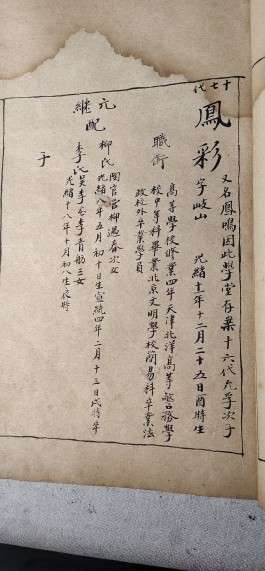 十七代
鳳彩
又名鳳鳴因此學堂存案十六代允孚次子
字岐山 光緒十一年十二月二十五日酉時生
職銜
高等學校修業四年天津北洋高等警務學
校甲等科畢業北京文明學校簡易科卒業法
政校外卒業學員
元配
繼
柳氏 閻官營柳遇春次女
光緒八年五月初十日生宣統四年二月十三日戌時卒
李氏吳李仓李青舫三女
光緒十八年十月初八生衣時
子